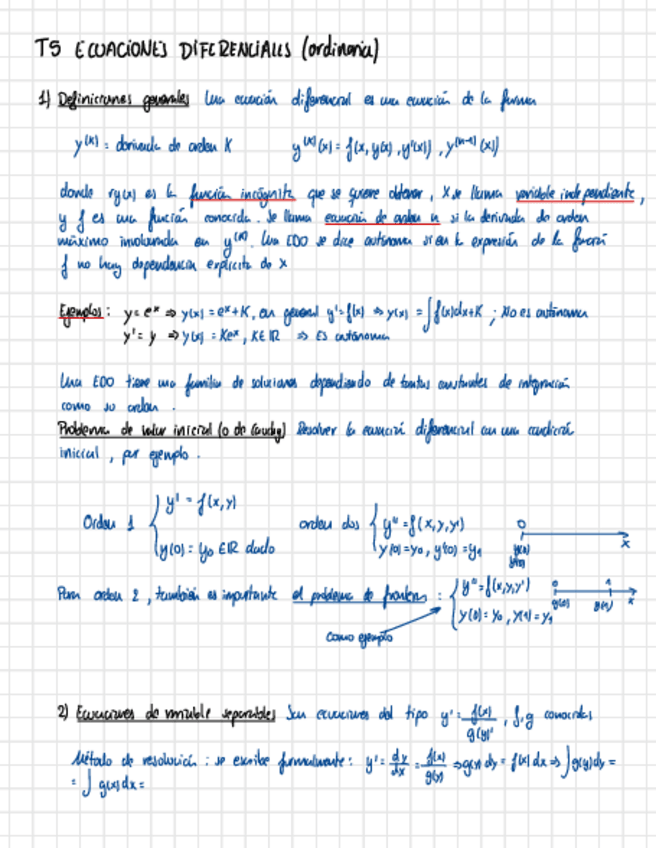 T5 ECUACIONES DIFERENCIALES (ordinaria)
1) Definiciones generales Una ecuación diferencial es una ecuación de la forma
y^(k) = derivada de orden K y^(k)(x) = f(x, y(x), y'(x)), y^(n-1)(x))
donde y(x) es la función incógnita que se quiere obtener, X se llama variable independiente,
y f es una función conocida. Se llama ecuación de orden n si la derivada de orden
máximo involucrada en y^(n). Una EDO se dice autónoma si en la expresión de la función
f no hay dependencia explícita de x
Ejemplos: y = e^x ⇒ y(x) = e^x + K, en general y' = f(x) ⇒ y(x) = ∫f(x)dx + K ; No es autónoma
y' = y ⇒ y(x) = Ke^x, K∈ℝ ⇒ Es autónoma
Una EDO tiene una familia de soluciones dependiendo de tantas constantes de integración
como su orden.
Problema de valor inicial (o de Cauchy) Resolver la ecuación diferencial con una condición
inicial, por ejemplo.
Orden 1 { y' = f(x,y) orden dos { y'' = f(x,y,y') 0
y(0) = y₀ ∈ℝ dado y(0) = y₀, y'(0) = y₁ y(0) x
y'(0)
Para orden 2, también es importante el problema de frontera : { y'' = f(x,y,y') 0 1
y(0) = y₀, y(1) = y₁ y(0) y(1) x
Como ejemplo
2) Ecuaciones de variable separables Son ecuaciones del tipo y' = f(x)/g(y), f, g conocidas
Método de resolución : se escribe formalmente: y' = dy/dx = f(x)/g(y) ⇒ g(y) dy = f(x) dx ⇒ ∫g(y)dy =
= ∫ g(x) dx =